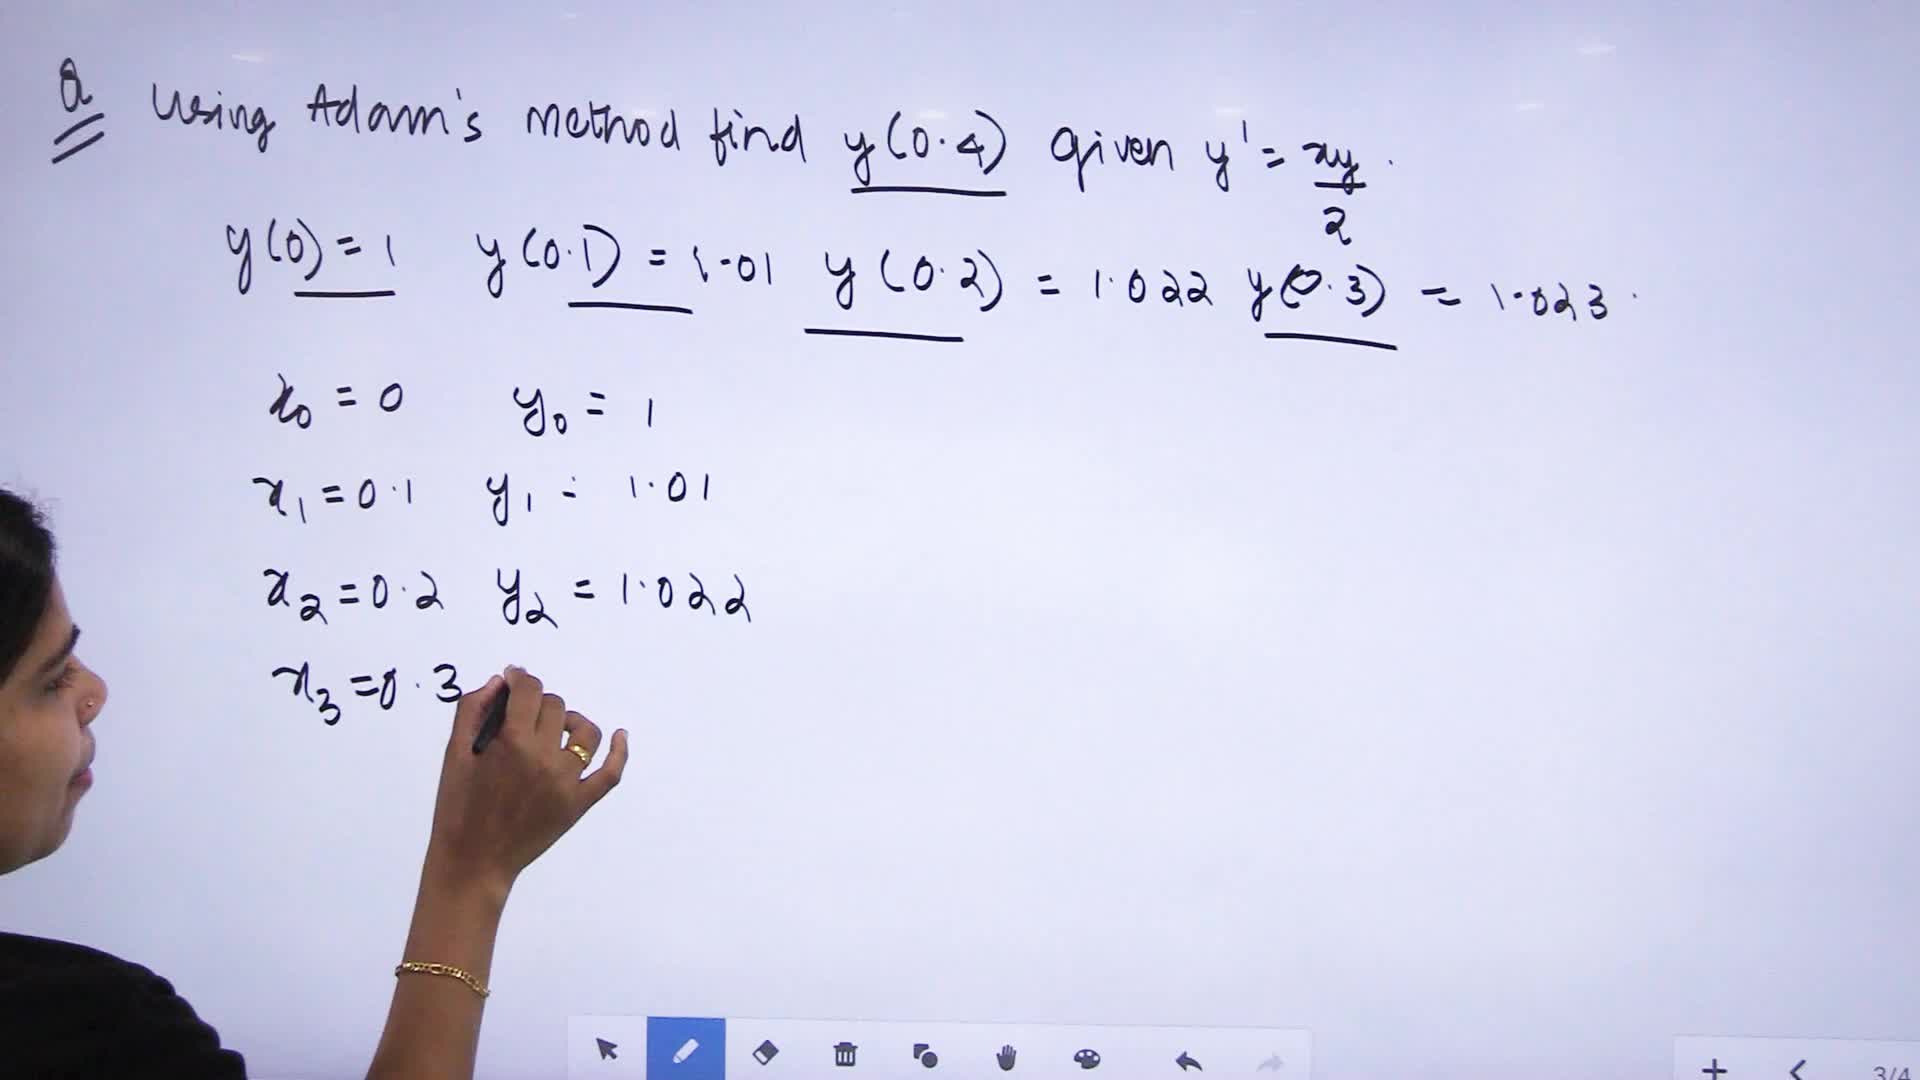 Q Using Adam's method find y(0.4) given y' = xy/2.
y(0) = 1 y(0.1) = 1.01 y(0.2) = 1.022 y(0.3) = 1.023.
x₀ = 0 y₀ = 1
x₁ = 0.1 y₁ = 1.01
x₂ = 0.2 y₂ = 1.022
x₃ = 0.3
3/4